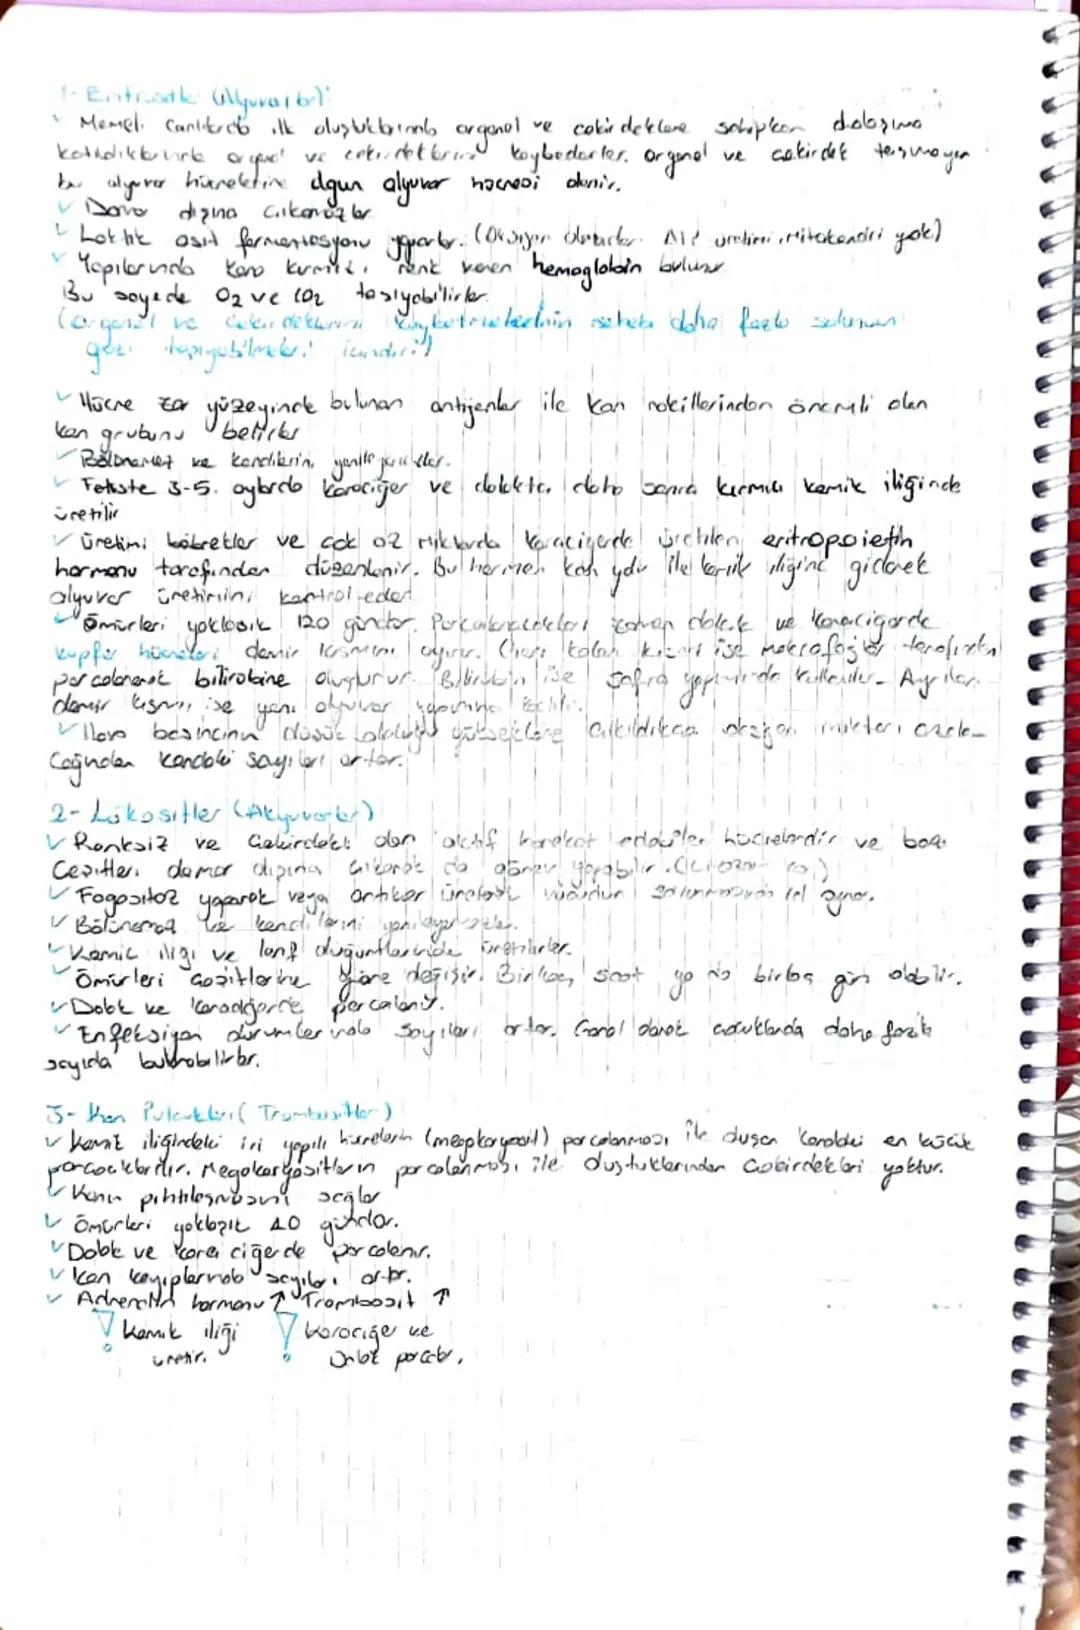 1- Eritrositler (Alyuvarlar):
✓ Memeli canlılarda ilk oluştuklarında organel ve çekirdeklere sahipken dolaşıma
katıldıklarında organel ve çekirdeklerini kaybederler. Organel ve çekirdek taşımayan
bu alyuvar hücrelerine olgun alyuvar hücresi denir.
✓ Damar dışına çıkamazlar
✓ Laktik asit fermantasyonu yaparlar. (Oksijen ATP üretimi, Mitokondri yok)
✓ Yapılarında kana kırmızı renk veren hemoglobin bulunur
Bu sayede O2 ve CO2 taşıyabilirler.
(Organel ve çekirdeklerini kaybetmelerinin sebebi daha fazla solunum
gazı taşıyabilmeleri içindir!)
✓ Hücre zar yüzeyinde bulunan antijenler ile kan nakillerinden önemli olan
kan grubunu belirler
✓ Bölünemez ve kendilerini yenileyemezler.
✓ Fetüste 3-5. aylarda karaciğer ve dalakta, daha sonra kırmızı kemik iliğinde
üretilir
✓ Üretimi böbrekler ve çok az miktarda karaciğerde üretilen eritropoietin
hormonu tarafından düzenlenir. Bu hormon kan yolu ile kemik iliğine giderek
alyuvar üretimini kontrol eder
✓ Ömürleri yaklaşık 120 gündür. Parçalanacakları zaman dalak ve karaciğerde
kupfer hücreleri demir kısmını ayırır. Geri kalan kısmı ise makrofajlar tarafından
parçalanarak bilirubine oluşturur. Bilirubin ise safra yapımında kullanılır. Ayrılan
demir kısmı ise yeni alyuvar yapımına katılır.
✓ Hava basıncının düşük olduğu yükseklere çıkıldıkça oksijen miktarı azala-
cağından kandaki sayıları artar.
2- Lökositler (Akyuvarlar)
✓ Renksiz ve çekirdekli olan aktif hareket edebilen hücrelerdir ve bazı
çeşitleri damar dışına çıkarak da görev yapabilir.
✓ Fagositoz yaparak veya antikor üreterek vücudun savunmasında rol oynar.
✓ Bölünemez ve kendilerini yenileyemezler.
✓ Kemik iliği ve lenf düğümlerinde üretilirler.
✓ Ömürleri çeşitlerine göre değişir. Birkaç saat ya da birkaç gün olabilir.
✓ Dalak ve karaciğerde parçalanır.
✓ Enfeksiyon durumlarında sayıları artar. Genel olarak çocuklarda daha fazla
sayıda bulunabilirler.
3- Kan Pulcukları (Trombositler)
✓ Kemik iliğindeki iri yapılı hücrelerin (megakaryosit) parçalanması ile oluşan kandaki en küçük
parçacıklardır. Megakaryositlerin parçalanması ile oluştuklarından çekirdekleri yoktur.
✓ Kanın pıhtılaşmasını sağlar
✓ Ömürleri yaklaşık 10 gündür.
✓ Dalak ve karaciğerde parçalanır.
✓ Kan kayıplarında sayıları artar.
✓ Adrenalin hormonu ↑ Trombosit ↑
! Kemik iliği ! Karaciğer ve
üretir. Dalak parçalar.